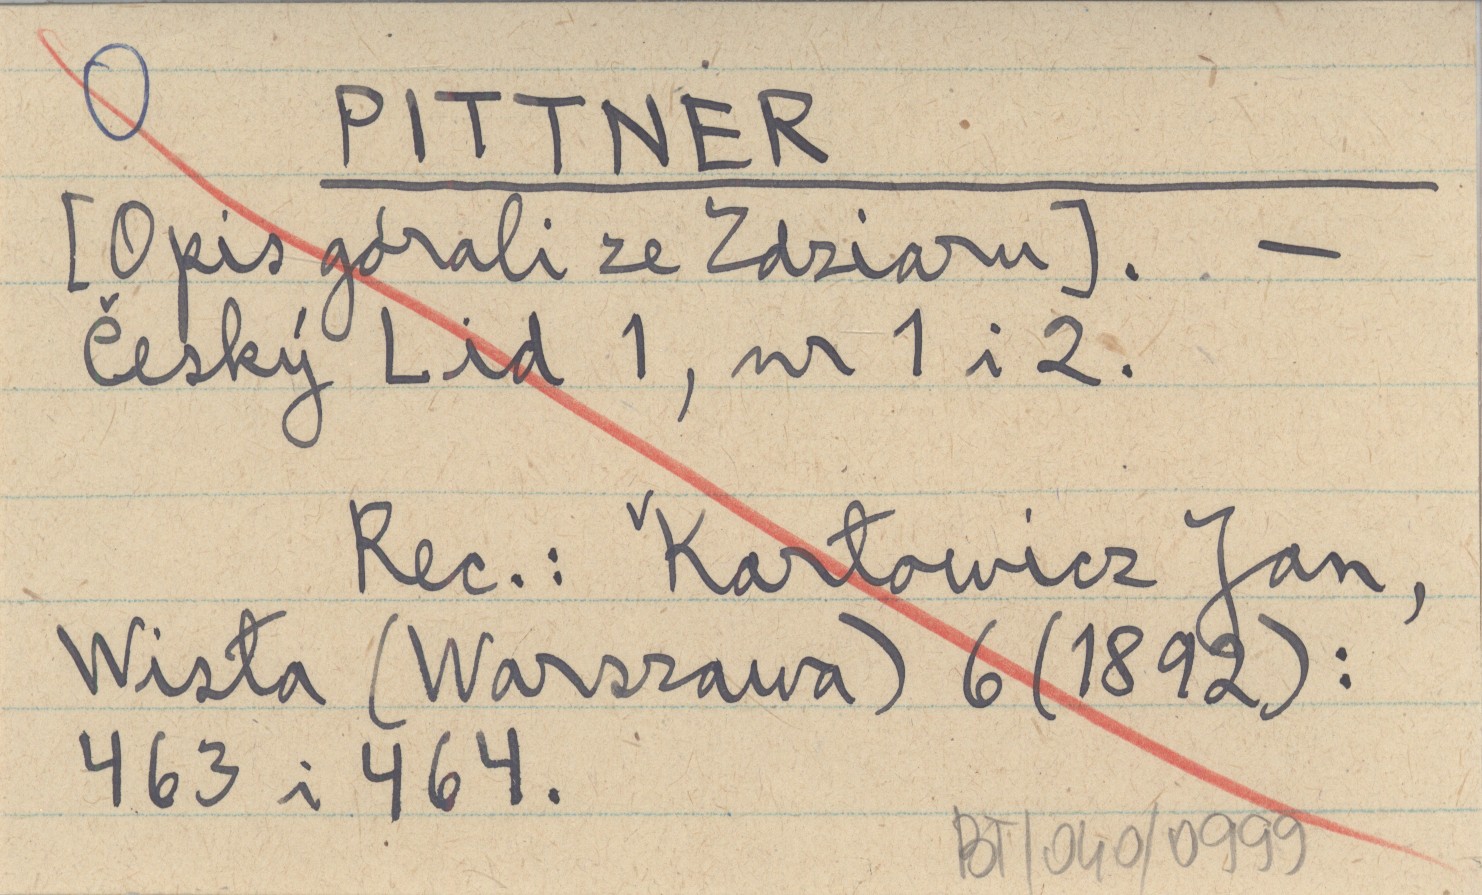 PITTNER
[Opis górali ze Zdziaru]. —
Český Lid 1, nr 1 i 2.
Rec.: ˇKarłowicz Jan,
Wisła (Warszawa) 6 (1892):
463 i 464.
BT/040/0999